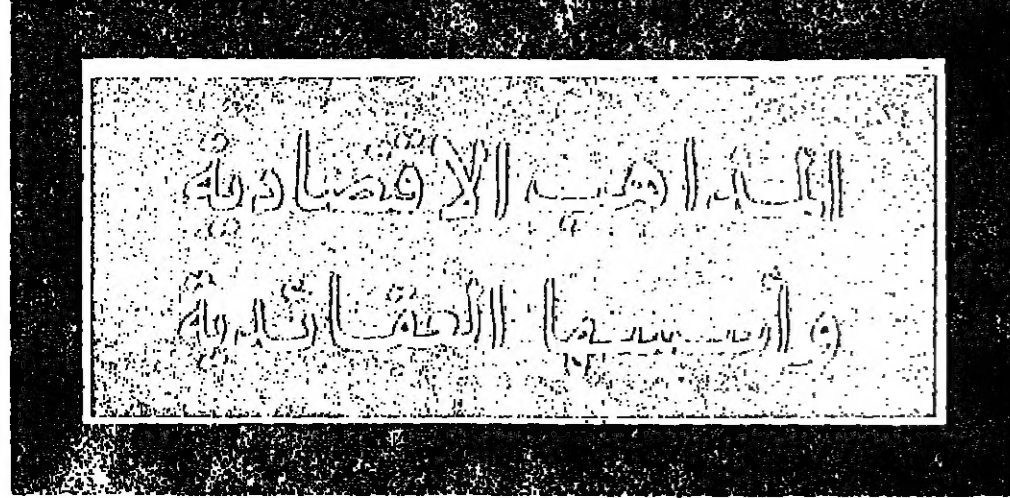 المذاهب الاقتصادية
وأسسها العقائدية